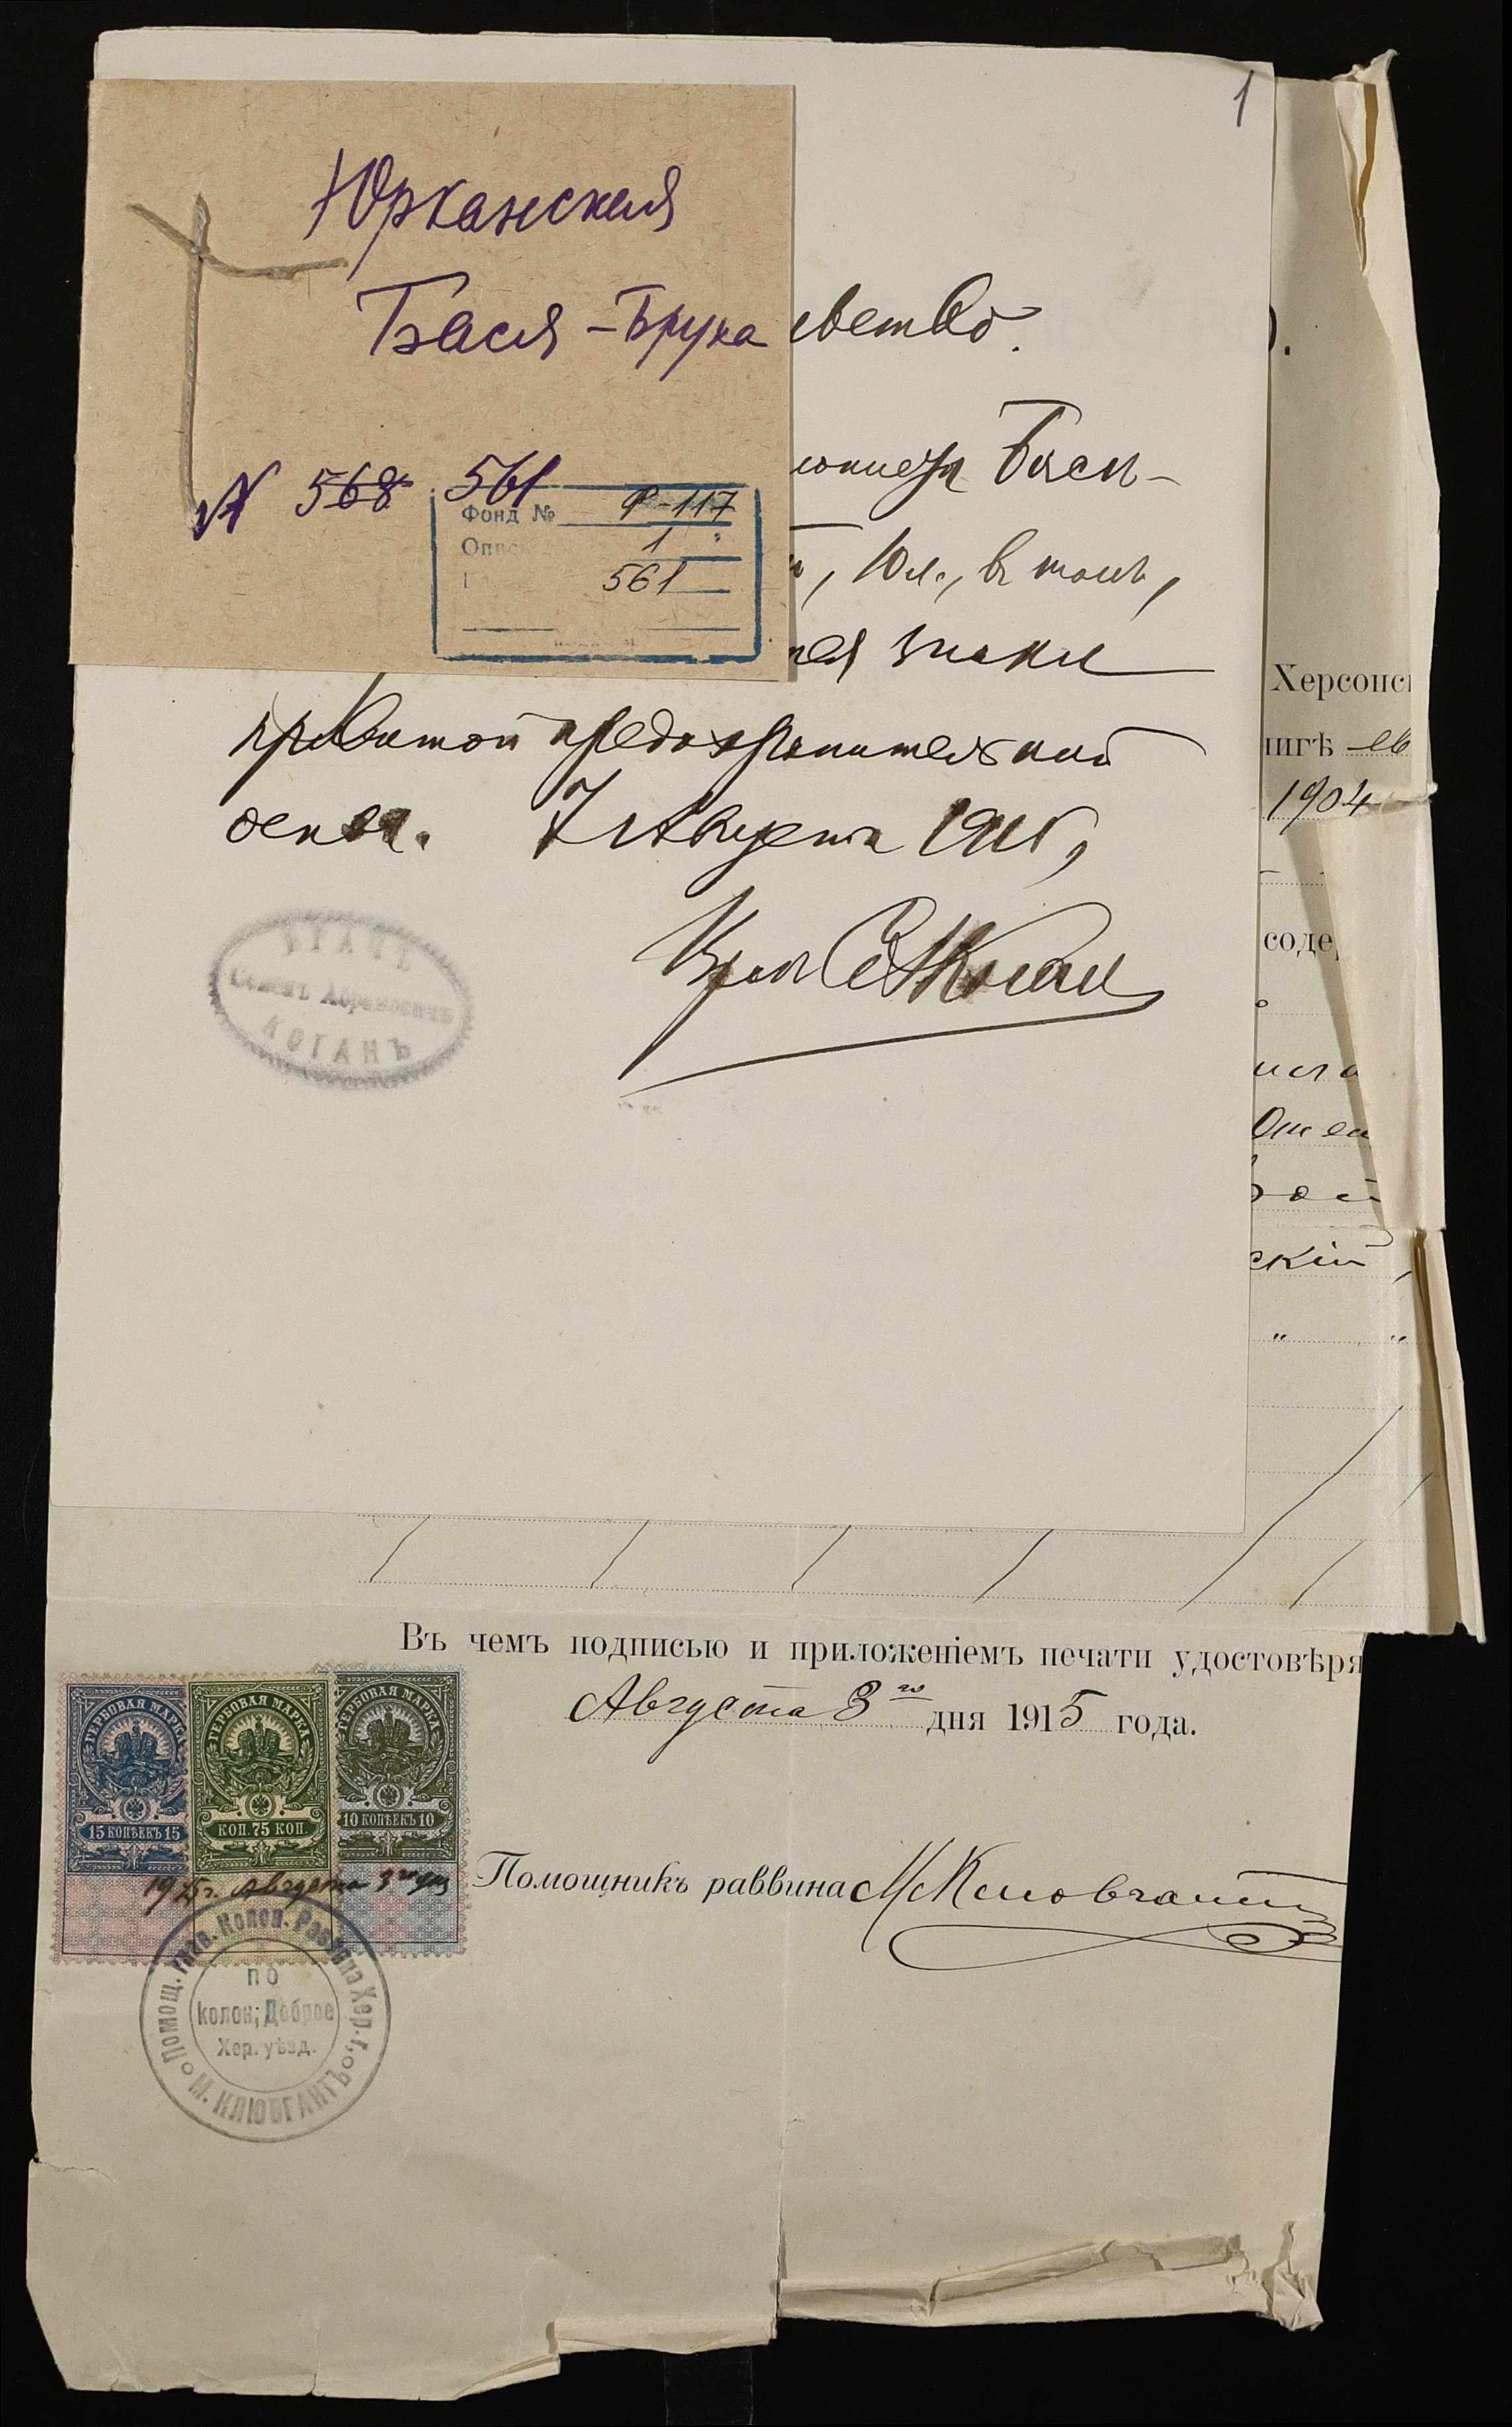 1
Юрканская
Бася-Брука
№ 568 561
Фонд № Р-117
Опис 1
561
Баси-
, 10 л., в томъ,
знаки
привитой предохранительной
оспы. 7 Августа 1915,
Врач С А Коган
ВРАЧЪ
Семенъ Абрамовичъ
КОГАНЪ
Херсонс
нигѣ ев
1904
соде
скій,
Въ чемъ подписью и приложеніемъ печати удостовѣря
Августа 3го дня 1915 года.
ГЕРБОВАЯ МАРКА
15 КОПѢЕКЪ 15
ГЕРБОВАЯ МАРКА
КОП. 75 КОП.
ГЕРБОВАЯ МАРКА
10 КОПѢЕКЪ 10
1915 г. Августа 3го дня
Помощникъ раввина М Клювгантъ
Помощ. Колон. Раввина Хер. г.
по
колон; Доброе
Хер. уѣзд.
М. КЛЮВГАНТЪ